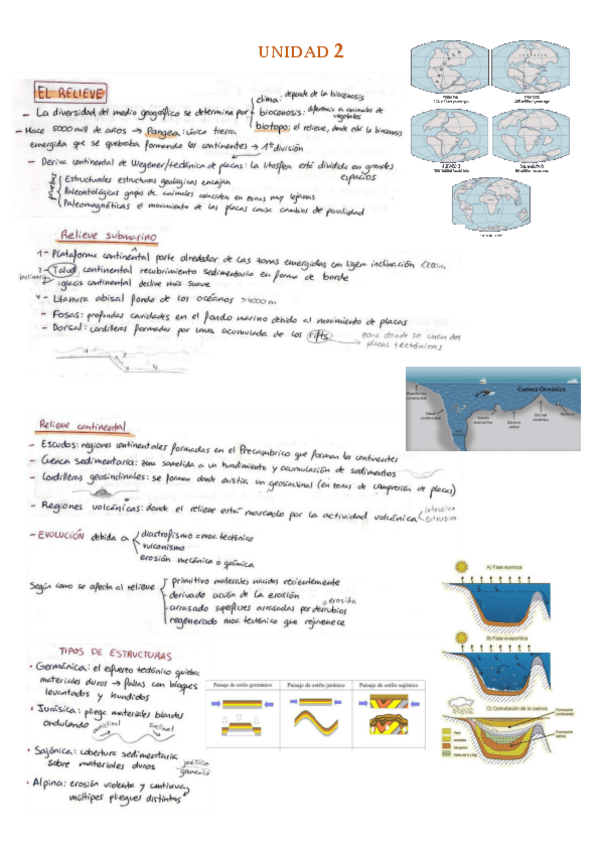 UNIDAD 2
EL RELIEVE
- La diversidad del medio geográfico se determina por
clima: depende de la biocenosis
biocenosis: diferencia a animales de vegetales
biotopo: el relieve, donde esté la biocenosis
- Hace 5000 mill de años → Pangea: única tierra
emergida que se quebraba formando los continentes → 1ª división
- Deriva continental de Wegener/tectónica de placas: la litosfera está dividida en grandes
espacios
pruebas
Estructurales estructuras geológicas encajan
Paleontológicas grupos de animales coinciden en zonas muy lejanas
Paleomagnéticas el movimiento de las placas causa cambios de polaridad
Relieve submarino
1- Plataforma continental parte alrededor de las zonas emergidas con ligera inclinación <200m
2- Talud continental recubrimiento sedimentario en forma de borde
inclinación
glacis continental declive más suave
4- Llanura abisal fondo de los océanos >4000 m
- Fosas: profundas cavidades en el fondo marino debido al movimiento de placas
- Dorsal: cordilleras formadas por lava acumulada de los rifts → zona donde se unen dos
placas tectónicas
1
2
4
Cuenca Oceánica
Relieve continental
- Escudos: regiones continentales formadas en el Precámbrico que forman los continentes
- Cuenca sedimentaria: zona sometida a un hundimiento y acumulación de sedimentos
- Cordilleras geosinclinales: se forman donde existía un geosinclinal (en zonas de compresión de placas)
- Regiones volcánicas: donde el relieve está marcado por la actividad volcánica
intrusiva
extrusiva
- EVOLUCIÓN debida a
diastrofismo = mov. tectónico
vulcanismo
erosión mecánica o química
Según como se afecta al relieve
primitivo materiales nacidos recientemente
derivado acción de la erosión
arrasado superficies arrasadas por derrubios
erosión
regenerado mov. tectónico que rejuvenece
A) Fase euxínica
B) Fase evaporítica
C) Colmatación de la cuenca
TIPOS DE ESTRUCTURAS
• Germánica: el esfuerzo tectónico quiebra
materiales duros → fallas con bloques
levantados y hundidos
• Jurásica: pliega materiales blandos
ondulando
• Sajónica: cobertura sedimentaria
sobre materiales duros
jurásico
germánico
• Alpina: erosión violenta y continua,
múltiples pliegues distintos
Paisaje de estilo germánico
Paisaje de estilo jurásico
Paisaje de estilo sajónico